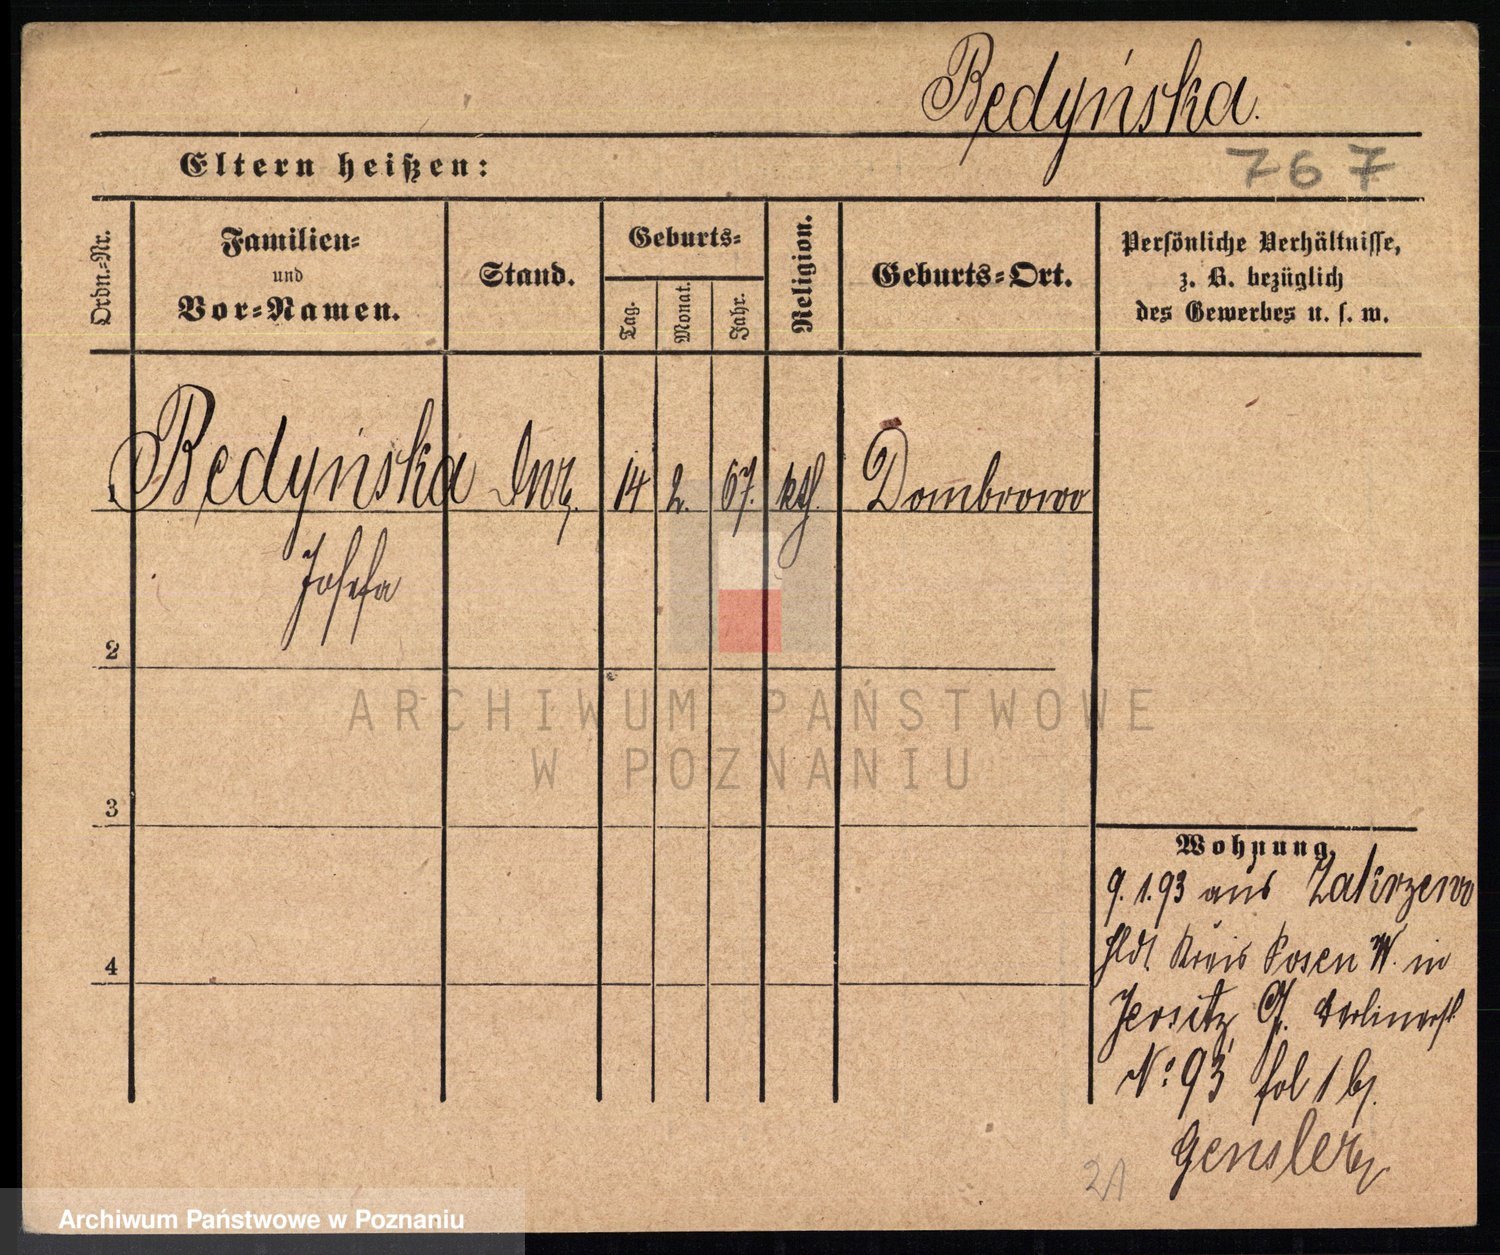 Będyńska.
Eltern heißen:
767
Ordn.-Nr.
Familien-
und
Vor-Namen.
Stand.
Geburts-
Tag.
Monat.
Jahr.
Religion.
Geburts-Ort.
Persönliche Verhältnisse,
z. B. bezüglich
des Gewerbes u. s. w.
Będyńska 14 2. 67. kth. Dombrowo
Josefa
2
3
4
ARCHIWUM PAŃSTWOWE
W POZNANIU
Wohnung.
9. 1. 93 aus Zakrzewo
Hld. Kreis Posen W. in
Jersitz, Gr. Berlinerst
No. 93 fol 1 bj.
Gensler
21
Archiwum Państwowe w Poznaniu